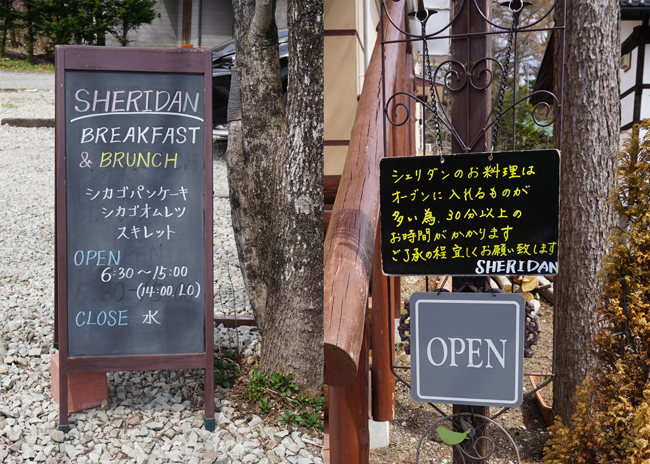 SHERIDAN
BREAKFAST
& BRUNCH
シカゴパンケーキ
シカゴオムレツ
スキレット
OPEN
6:30～15:00
(14:00.LO)
CLOSE 水
シェリダンのお料理は
オーブンに入れるものが
多い為、30分以上の
お時間がかかります
ご了承の程宜しくお願い致します
SHERIDAN
OPEN